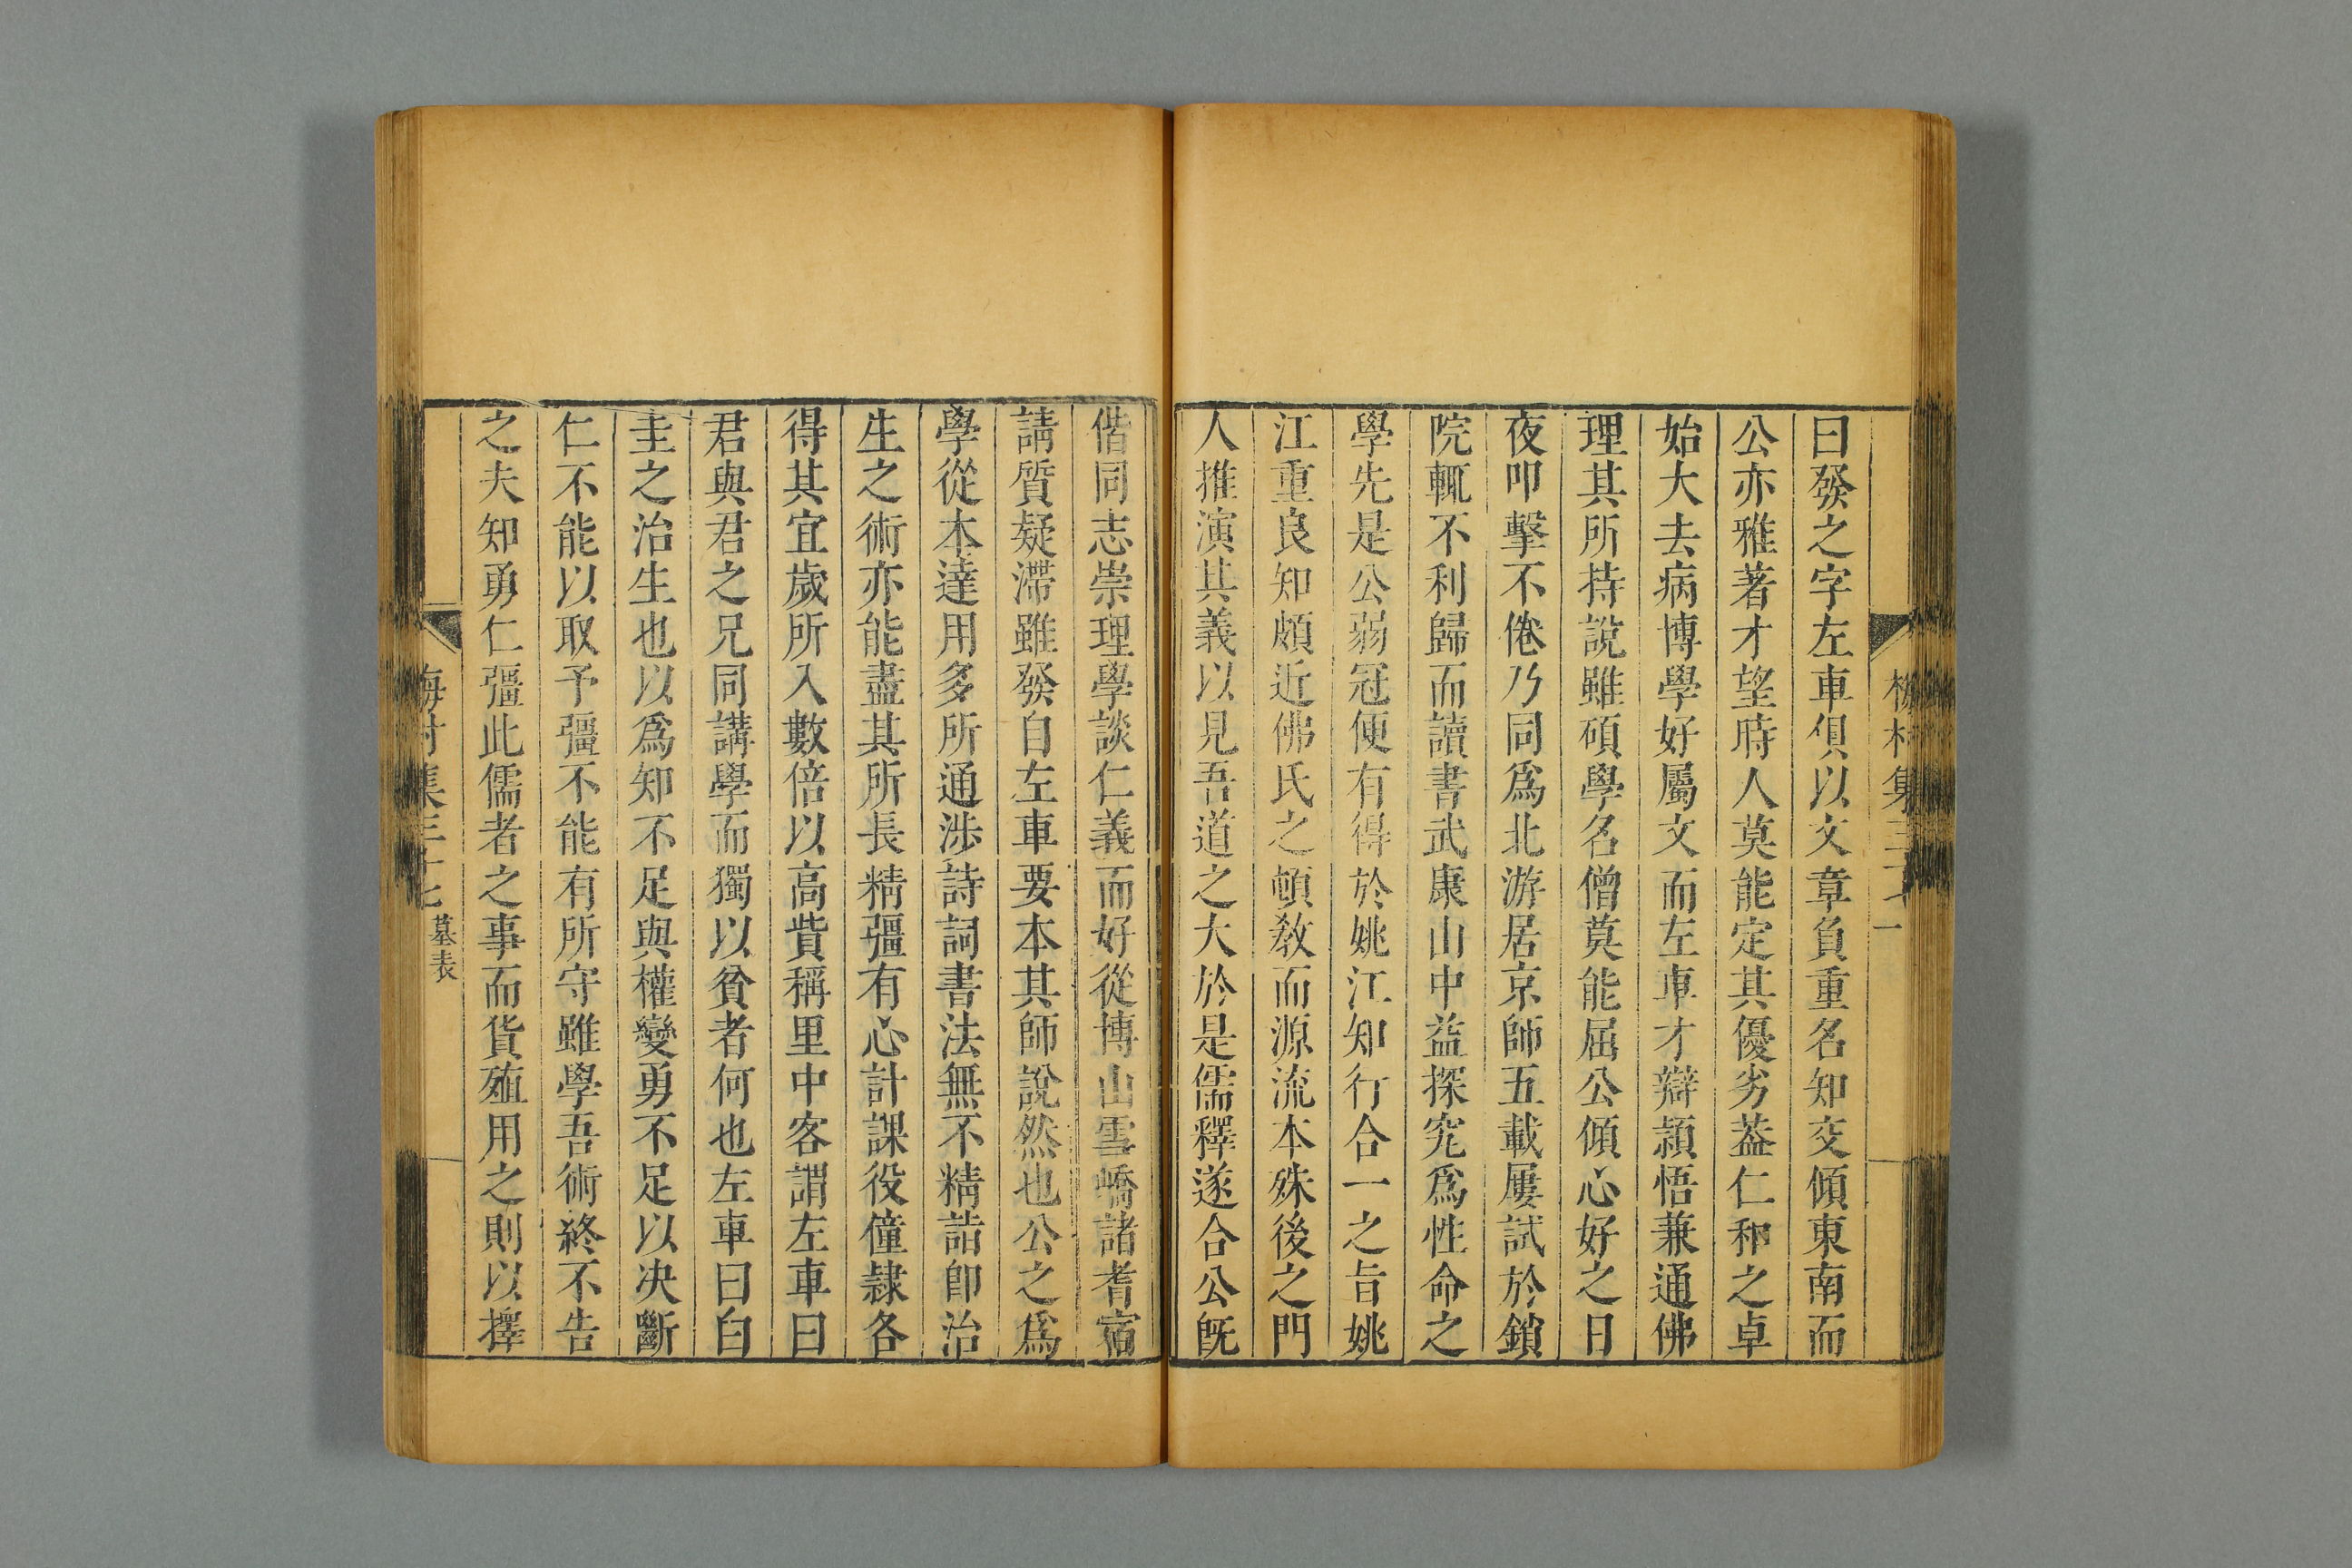 曰發之字左車俱以文章負重名知交傾東南而
公亦雅著才望時人莫能定其優劣葢仁和之卓
始大去病博學好屬文而左車才辯頴悟兼通佛
理其所持說雖碩學名僧莫能屈公傾心好之日
夜叩擊不倦乃同爲北游居京師五載屢試於鎖
院輒不利歸而讀書武康山中益探究爲性命之
學先是公弱冠便有得於姚江知行合一之旨姚
江重良知頗近佛氏之頓教而源流本殊後之門
人推演其義以見吾道之大於是儒釋遂合公旣
偕同志崇理學談仁義而好從博山雪嶠諸耆宿
請質疑滯雖發自左車要本其師說然也公之爲
學從本達用多所通涉詩詞書法無不精詣卽治
生之術亦能盡其所長精彊有心計課役僮隸各
得其宜歲所入數倍以高貲稱里中客謂左車曰
君與君之兄同講學而獨以貧者何也左車曰白
圭之治生也以爲知不足與權變勇不足以决斷
仁不能以取予彊不能有所守雖學吾術終不告
之夫知勇仁彊此儒者之事而貨殖用之則以擇
梅村集三十七
墓表